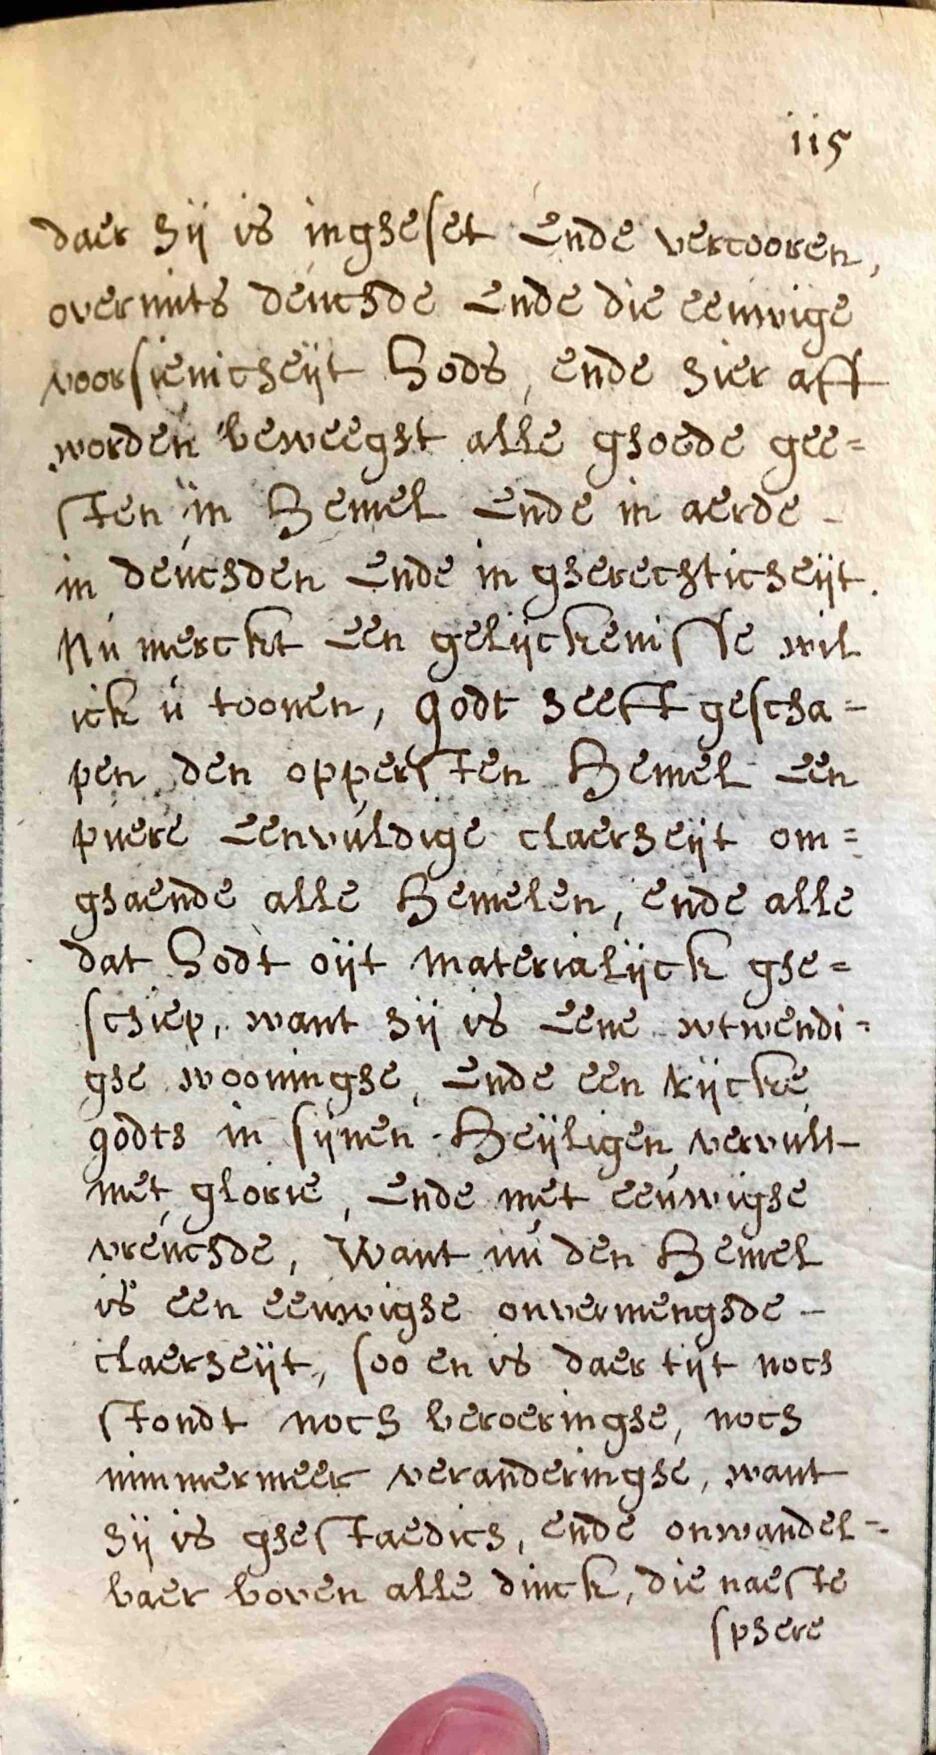 115
daer hij is ingheset ende vercooren,
overmits deuchde ende die eeuwige
voorsienicheijt Gods, ende hier aff
worden beweeght alle ghoede gee=
sten in Hemel ende in aerde -
in deuchden ende in gherechticheijt.
Nu merckt een gelijckenisse wil
ick u toonen, godt heeft gescha=
pen den oppersten Hemel een
puere eenvuldige claerheijt om=
ghaende alle Hemelen, ende alle
dat Godt oijt materialijck ghe=
schiep, want hij is eene wtwendi=
ghe wooninghe, ende een rijcke
godts in sijnen Heijligen vervult
met glorie, ende met eeuwighe
vreuchde, Want nu den Hemel
is een eeuwighe onvermenghde -
claerheijt, soo en is daer tijt noch
stondt noch beroeringhe, noch
nimmermeer veranderinghe, want
hij is ghestaedich, ende onwandel=
baer boven alle dinck, die naeste
sphere